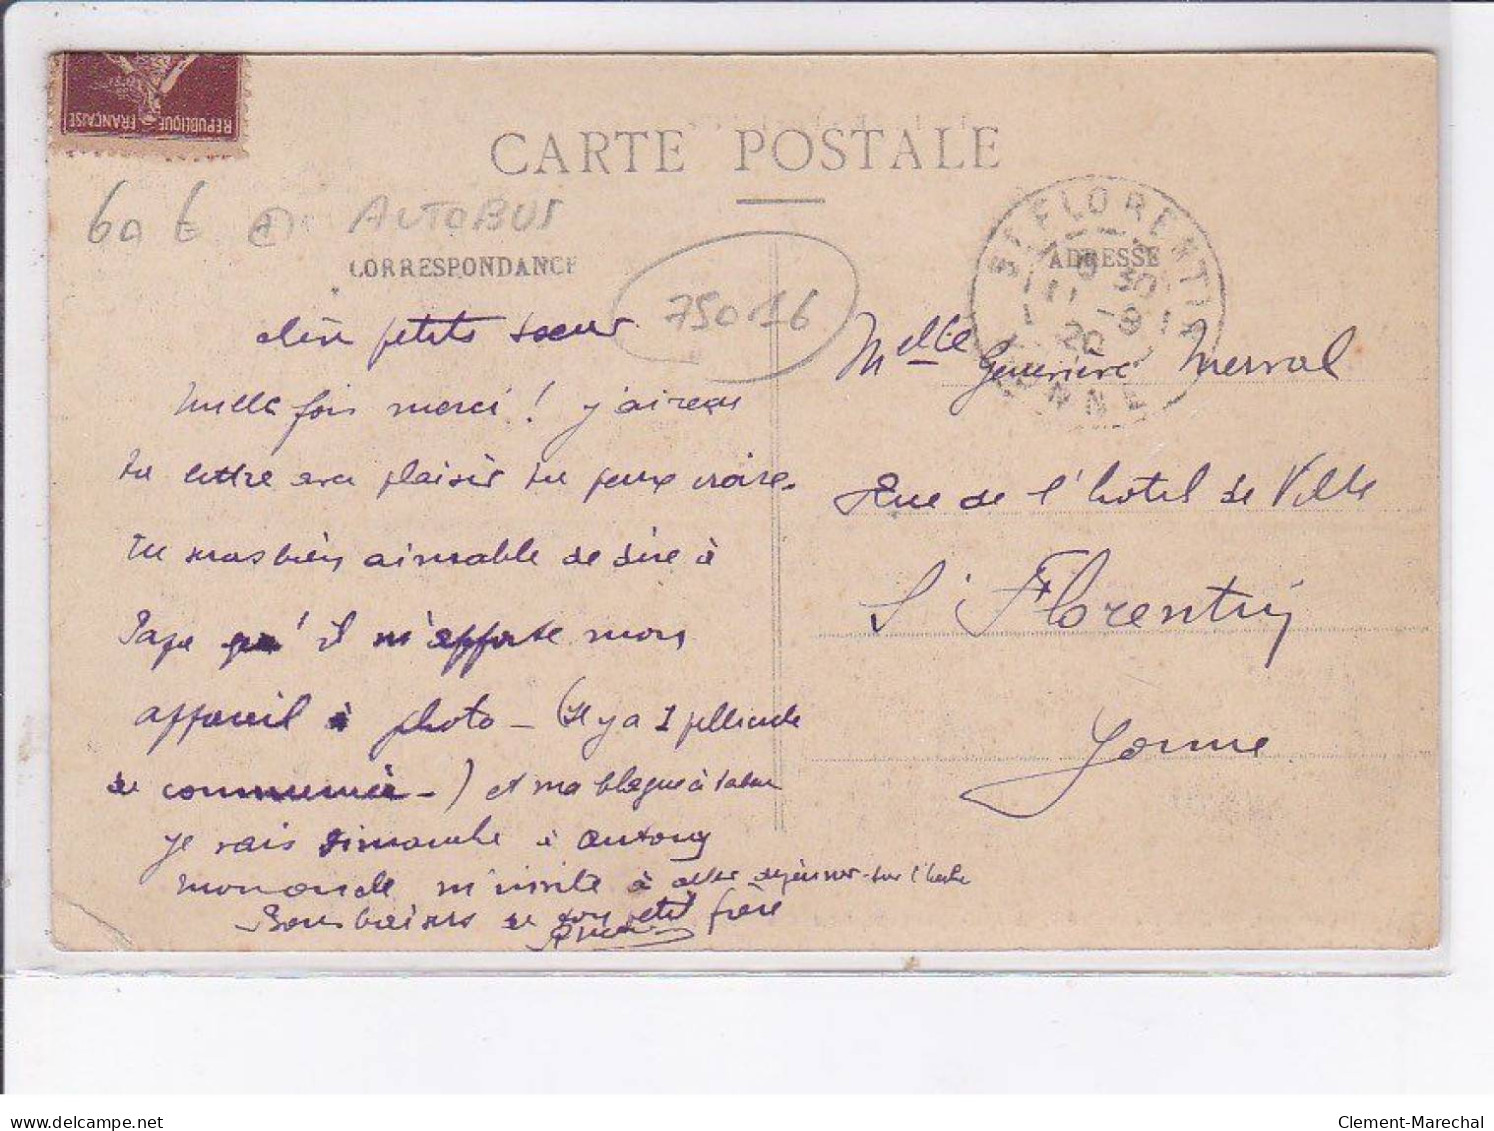 REPUBLIQUE FRANÇAISE
CARTE POSTALE
60 € AUTOBUS
CORRESPONDANCE
ADRESSE
75016
ST FLORENTIN
YONNE
30
petite soeur
Mille fois merci ! j'ai reçu
ta lettre avec plaisir tu peux croire.
Tu seras bien aimable de dire à
Papa qu'il m'apporte mon
appareil à photo - (il y a 1 pellicule
de commencée -) et ma blague à tabac
je vais Dimanche à Antony
m'invite à aller déjeuner sur l'herbe
Bons baisers de ton petit frère
Melle Geneviève Merval
Rue de l'hotel de Ville
St Florentin
Yonne
delcampe.net
Clement-Marechal